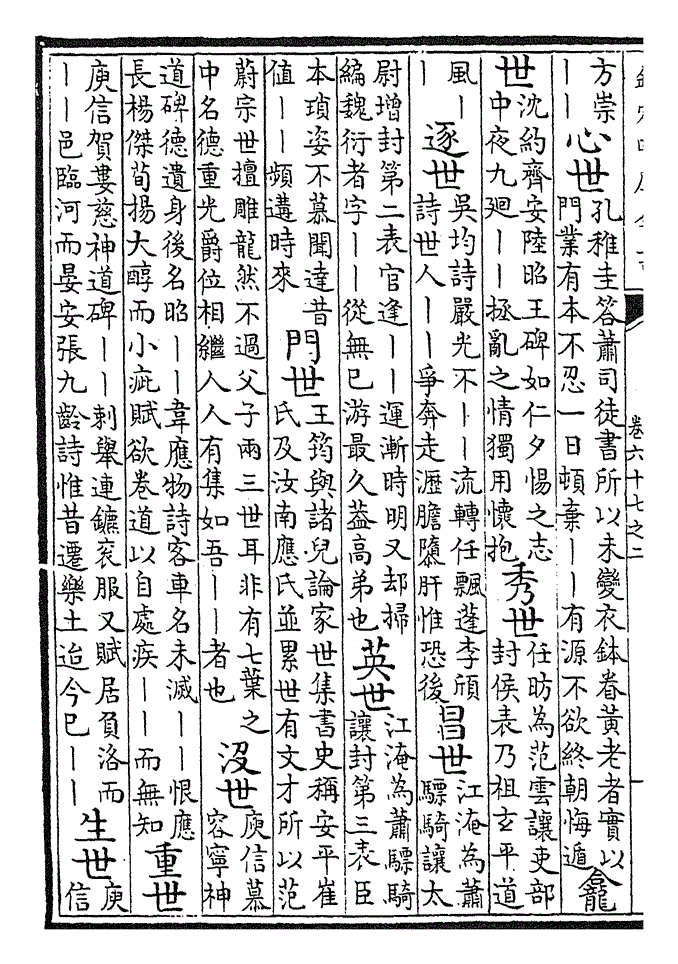 卷六十七之二
方崇
——
心世
孔稚圭答蕭司徒書所以未變衣鉢眷黃老者實以
門業有本不忍一日頓棄——有源不欲終朝悔遁
龕
世
沈約齊安陸昭王碑如仁夕惕之志
中夜九廻——拯亂之情獨用懷抱
秀世
任昉為范雲讓吏部
封侯表乃祖玄平道
風—
—
逐世
吳均詩嚴光不——流轉任飄蓬李頎
詩世人———爭奔走瀝膽隳肝惟恐後
昌世
江淹為蕭
驃騎讓太
尉增封第二表官逢——運漸時明又却掃
編魏衍者字——從無已游最久葢高弟也
英世
江淹為蕭驃騎
讓封第三表臣
本瑣姿不慕聞達昔
值——頻遘時來
門世
王筠與諸兒論家世集書史稱安平崔
氏及汝南應氏並累世有文才所以范
蔚宗世擅雕龍然不過父子兩三世耳非有七葉之
中名德重光爵位相繼人人有集如吾——者也
沒世
庾信慕
容寧神
道碑德遺身後名昭——韋應物詩客車名未滅——恨應
長楊傑荀揚大醇而小疵賦欲卷道以自處疾——而無知
重世
庾信賀婁慈神道碑——刺舉連鑣袞服又賦居負洛而
——邑臨河而晏安張九齡詩惟昔遷樂土迨今已——
生世
庾
信